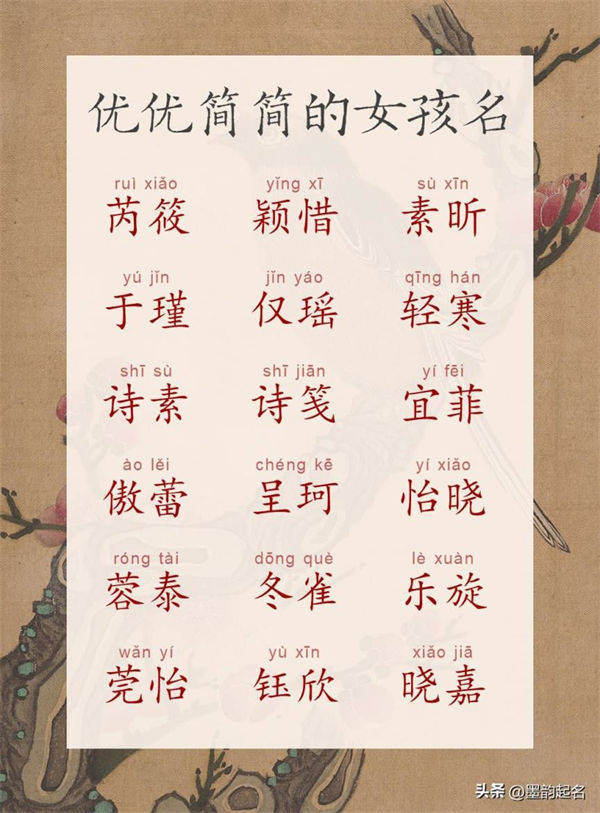 优优简简的女孩名
ruì xiǎo yǐng xī sù xīn
芮筱 颖惜 素昕
yú jǐn jǐn yáo qīng hán
于瑾 仅瑶 轻寒
shī sù shī jiān yí fēi
诗素 诗笺 宜菲
ào lěi chéng kē yí xiǎo
傲蕾 呈珂 怡晓
róng tài dōng què lè xuàn
蓉泰 冬雀 乐旋
wǎn yí yù xīn xiǎo jiā
莞怡 钰欣 晓嘉
头条 @墨韵起名